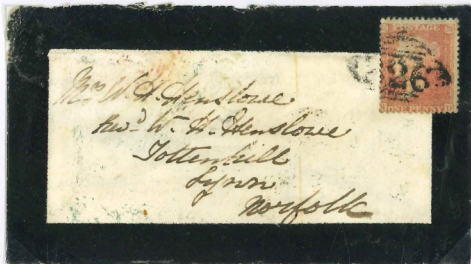 POSTAGE
26
Mrs W. H. Henslowe
Revd W. H. Henslowe
Tottenhill
Lynn
Norfolk